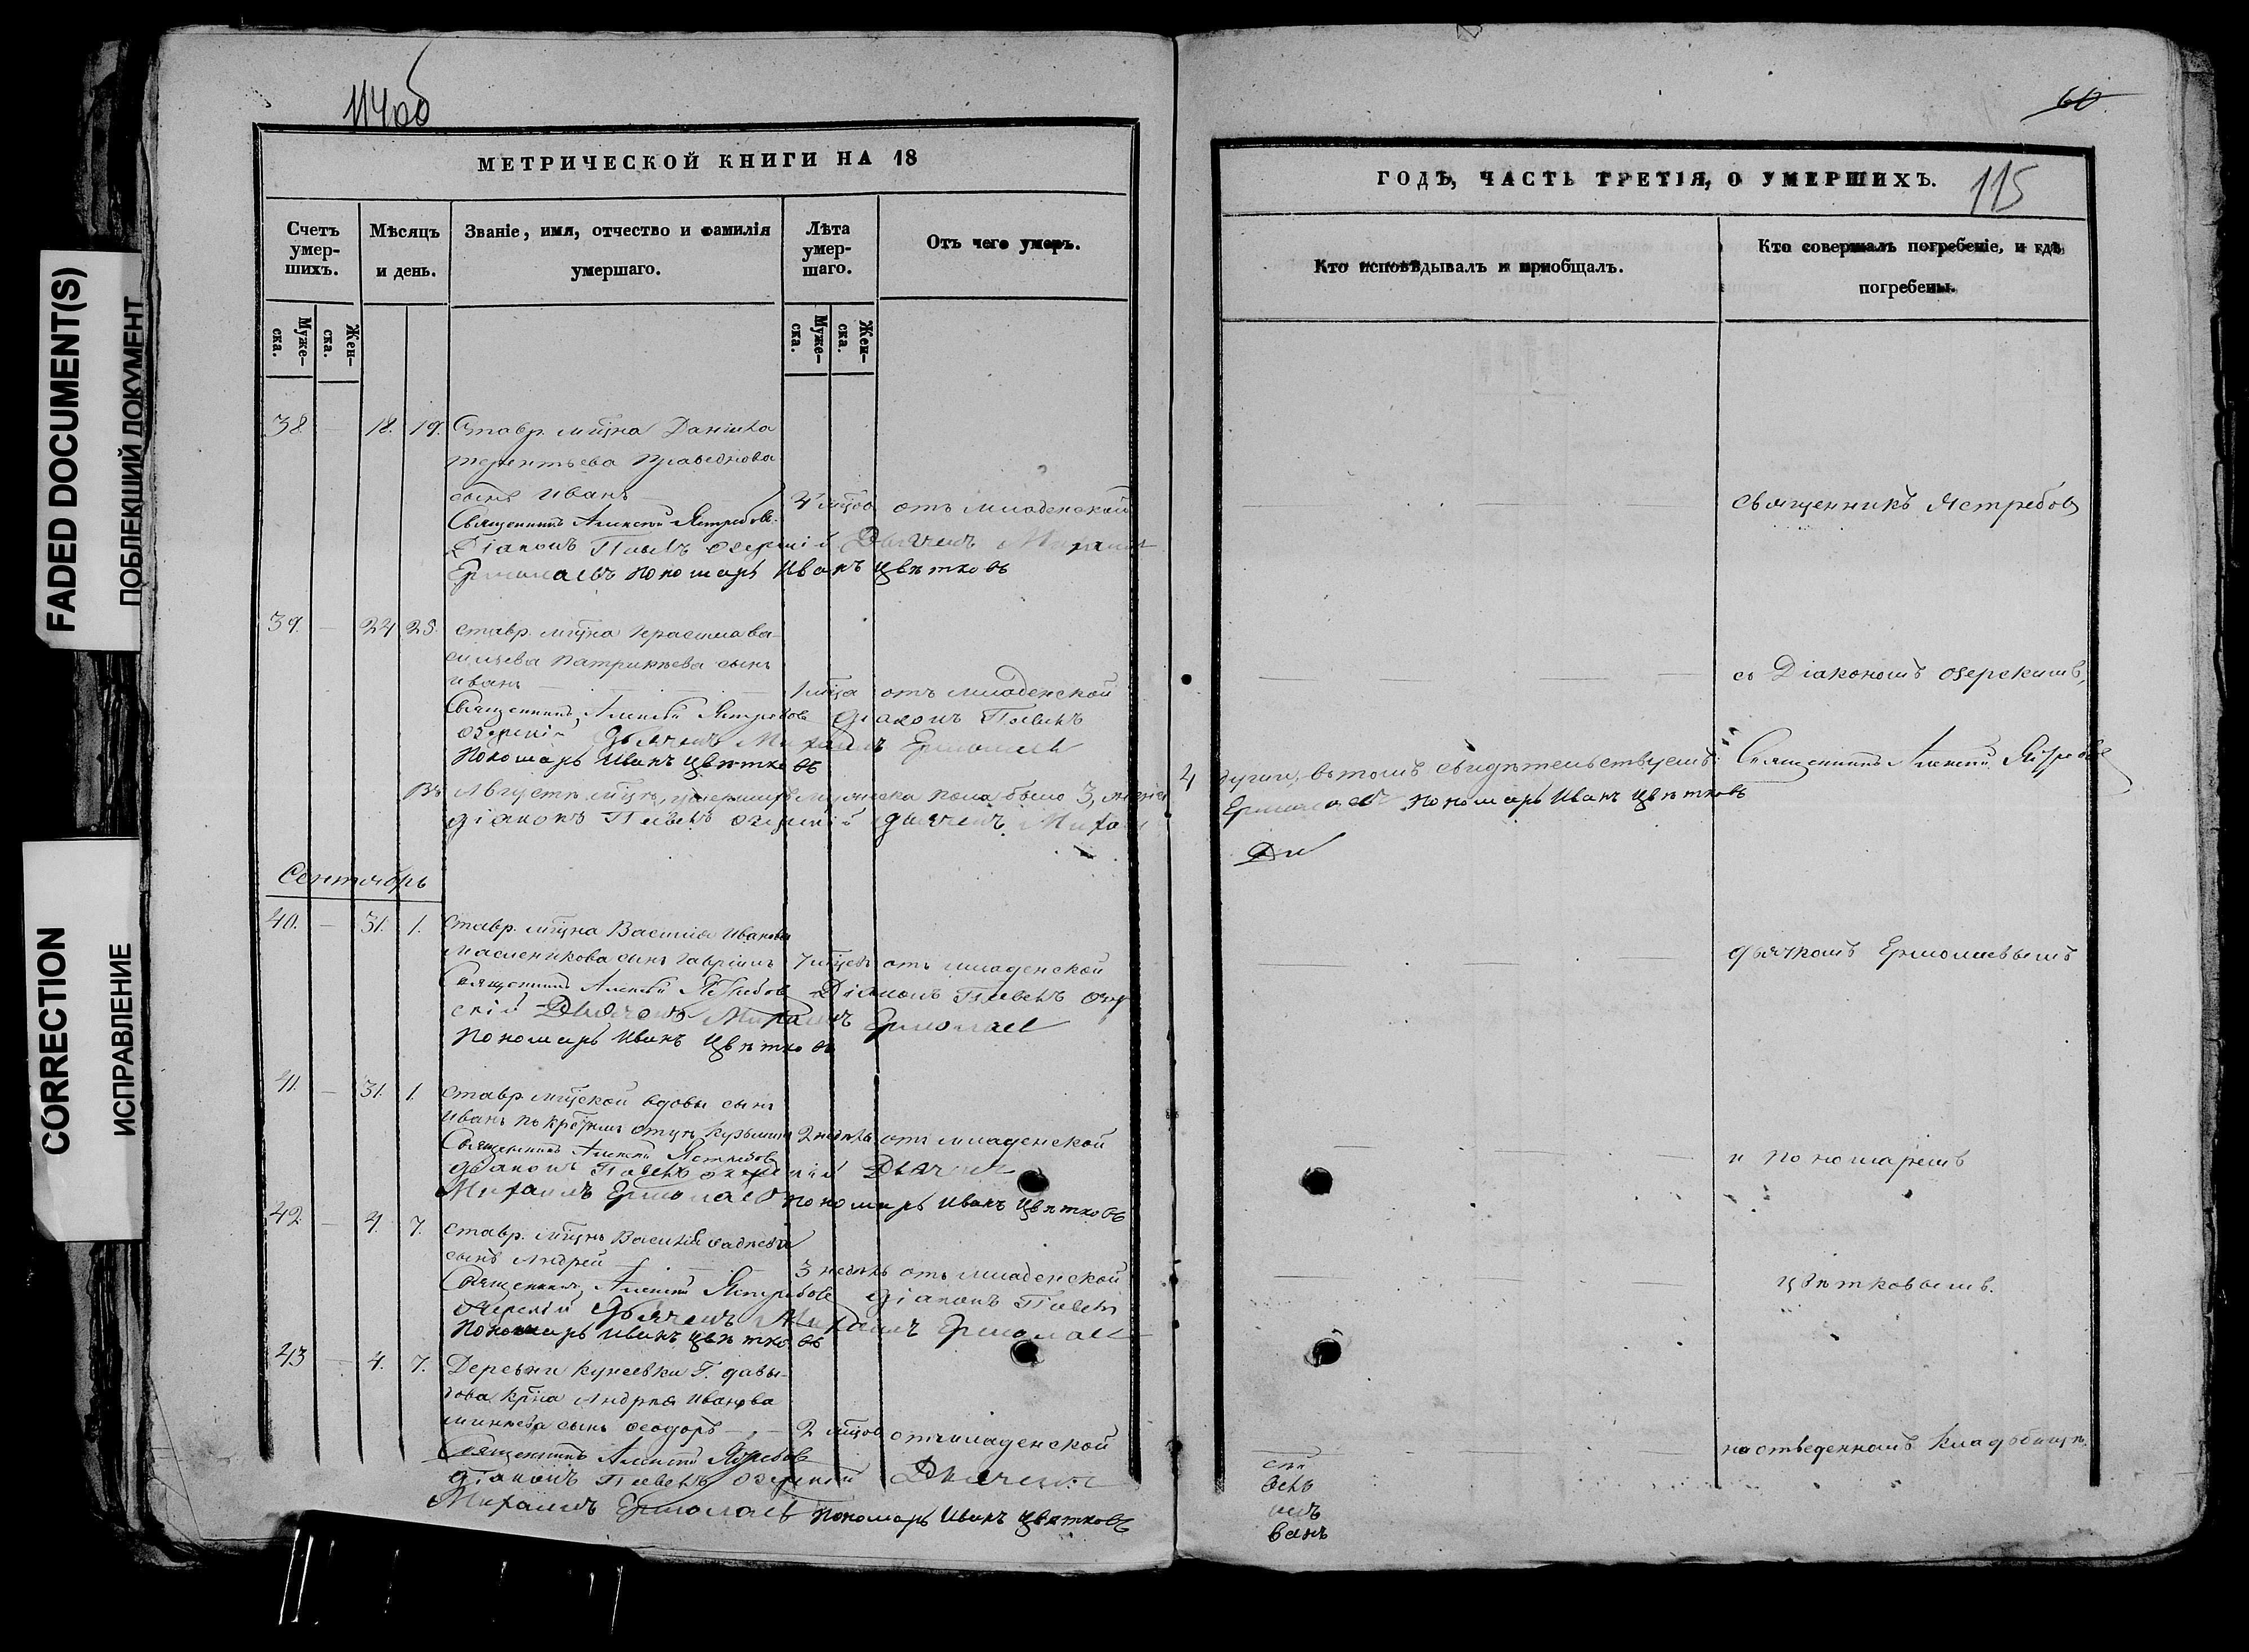 114об
МЕТРИЧЕСКОЙ КНИГИ НА 18
Счетъ умер-шихъ.
Мѣсяцъ и день.
Званіе, имя, отчество и фамилія умершаго.
Лѣта умер-шаго.
Отъ чего умеръ.
Муже-ска.
Жен-ска.
Муже-ска.
Жен-ска.
38. — 18. 19. Ставр. мщна Даніила
терентьева
сынъ Иванъ — 4 мцов отъ младенской
Священникъ Алексѣй Ястребовъ
Діаконъ Павелъ Озерскій Дьячекъ Михаилъ
Ермолаевъ Пономарь Иванъ Цвѣтковъ
39. — 24 25. ставр. мщна Герасима Ва-
сильева Патрикѣева сынъ
иванъ — 1 мца отъ младенской
Священникъ Алексѣй Ястребовъ Діаконъ Павелъ
Озерскій Дьячекъ Михаилъ Ермолаевъ
Пономарь Иванъ Цвѣтковъ
Въ Августѣ мцѣ, умершихъ мужеска пола было 3,
Діаконъ Павелъ Озерскій Дьячекъ Михаилъ
Сентябрь
40. — 31. 1. Ставр. мщна Василія Иванова
Масленикова сынъ Гавріилъ 7 мцевъ отъ младенской
Священникъ Алексѣй Ястребовъ Діаконъ Павелъ Озер
скій Дьячекъ Михаилъ Ермолаевъ
Пономарь Иванъ Цвѣтковъ
41. — 31. 1. ставр мщской вдовы сынъ
Иванъ по крестн. отцѣ Кузьминъ 2 недѣль отъ младенской
Священникъ Алексѣй Ястребовъ
Діаконъ Павелъ Озерскій Дьячекъ
Михаилъ Ермолаевъ Пономарь Иванъ Цвѣтковъ
42 — 4. 7. ставр. мщнъ Василія
сынъ Андрей — 3 недѣль отъ младенской
Священникъ Алексѣй Ястребовъ Діаконъ Павелъ
Озерскій Дьячекъ Михаилъ Ермолаевъ
Пономарь Иванъ Цвѣтковъ
43 — 4. 7. Деревни Кунеевки Г. Давы-
дова крна Андрея Иванова
Минѣева сынъ Ѳеодоръ — 2 мцов отъ младенской
Священникъ Алексѣй Ястребовъ
Діаконъ Павелъ Озерскій Дьячекъ
Михаилъ Ермолаевъ Пономарь Иванъ Цвѣтковъ
60
ГОДЪ, ЧАСТЬ ТРЕТІЯ, О УМЕРШИХЪ.
115
Кто исповѣдывалъ и пріобщалъ.
Кто совершалъ погребеніе, и гдѣ погребены.
Священникъ Ястребовъ
съ Діакономъ Озерскимъ,
4 души, въ томъ свидѣтельствуемъ: Священникъ Алексѣй Ястребовъ
Ермолаевъ Пономарь Иванъ Цвѣтковъ
дьячкомъ Ермолаевымъ
и пономаремъ
Цвѣтковымъ.
на отведенномъ кладбищѣ.
скій
велъ
илъ
ванъ
FADED DOCUMENT(S)
ПОБЛЕКШИЙ ДОКУМЕНТ
CORRECTION
ИСПРАВЛЕНИЕ